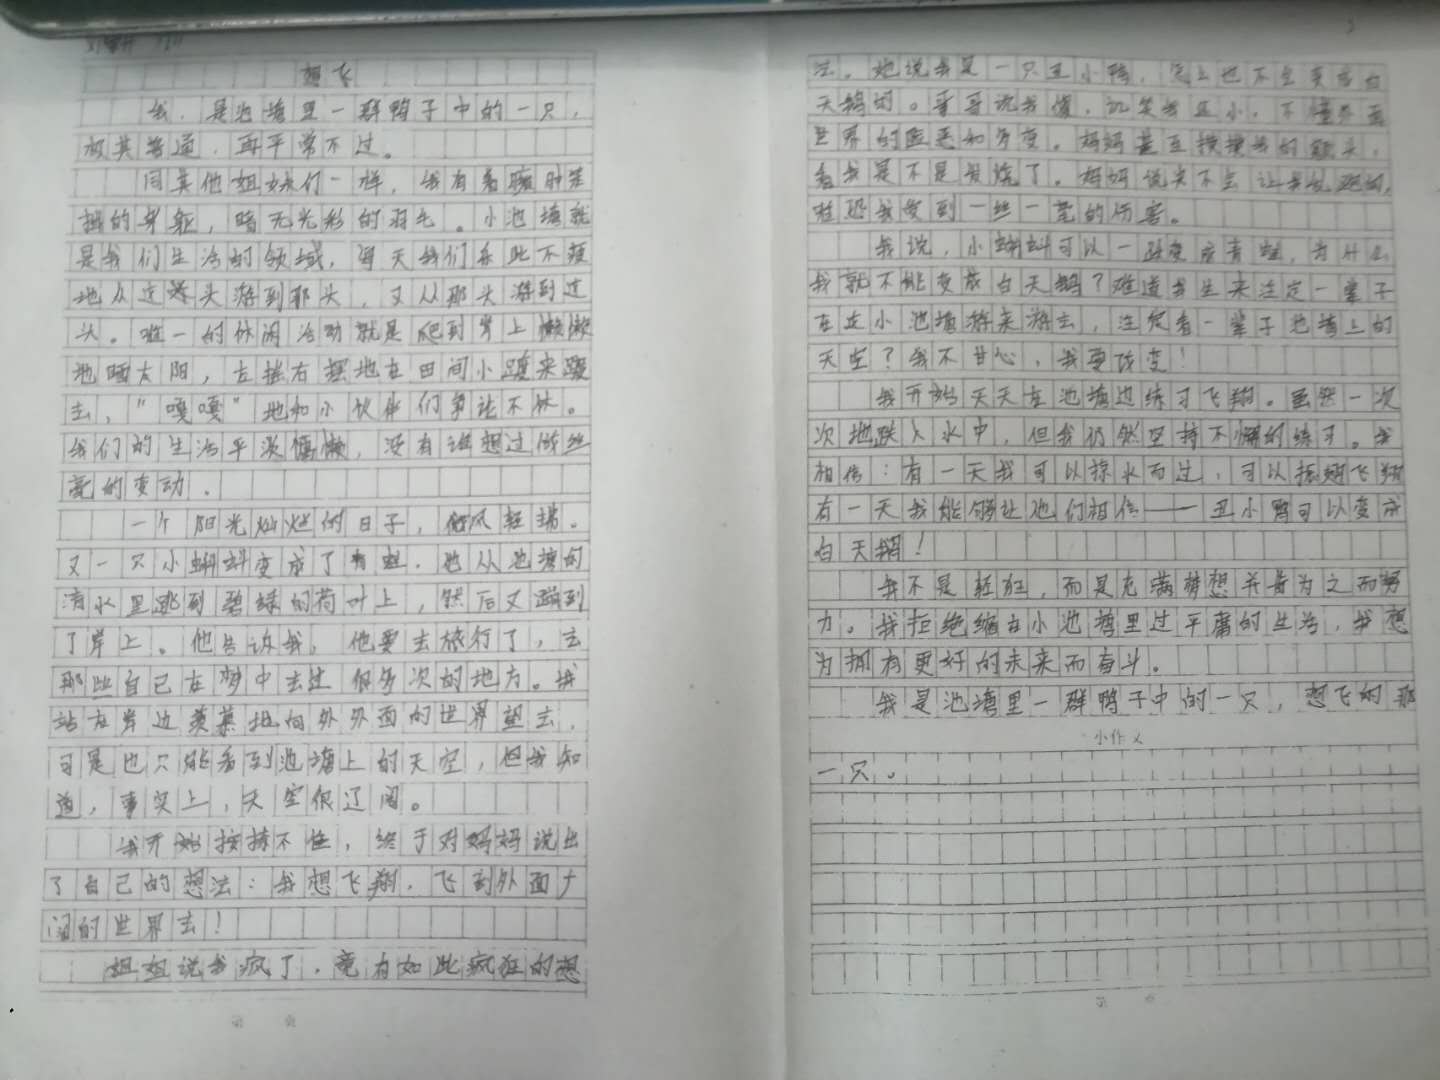 想飞
我，是池塘里一群鸭子中的一只，
极其普通，再平常不过。
同其他姐妹们一样，我有着臃肿笨
拙的身躯，暗无光彩的羽毛。小池塘就
是我们生活的领域，每天我们乐此不疲
地从这头游到那头，又从那头游到这
头。唯一的休闲活动就是爬到岸上懒懒
地晒太阳，左摇右摆地在田间小踱来踱
去，“嘎嘎”地和小伙伴们争论不休。
我们的生活平淡慵懒，没有谁想过做丝
毫的变动．
一个阳光灿烂的日子，微风轻拂。
又一只小蝌蚪变成了青蛙．他从池塘的
清水里跳到碧绿的荷叶上，然后又蹦到
了岸上。他告诉我，他要去旅行了，去
那些自己在梦中去过很多次的地方。我
站在岸边羡慕地向外外面的世界望去，
可是也只能看到池塘上的天空，但我知
道，事实上，天空很辽阔。
我开始按捺不住，终于对妈妈说出
了自己的想法：我想飞翔，飞到外面广
阔的世界去！
姐姐说我疯了，竟有如此疯狂的想
法。她说我是一只丑小鸭，怎么也不会变成白
天鹅的。哥哥说我傻，讥笑我还小，不懂外面
世界的险恶和多变。妈妈甚至摸摸我的额头，
看我是不是发烧了。妈妈说决不会让我乱跑的，
唯恐我受到一丝一毫的伤害。
我说，小蝌蚪可以一跃变成青蛙，为什么
我就不能变成白天鹅？难道我生来注定一辈子
在这小池塘游来游去，注定看一辈子池塘上的
天空？我不甘心，我要改变！
我开始天天在池塘边练习飞翔。虽然一次
次地跌入水中，但我仍然坚持不懈的练习。我
相信：有一天我可以掠水而过，可以振翅飞翔
有一天我能够让他们相信——丑小鸭可以变成
白天鹅！
我不是轻狂，而是充满梦想并肯为之而努
力。我拒绝缩在小池塘里过平庸的生活，我想
为拥有更好的未来而奋斗。
我是池塘里一群鸭子中的一只，想飞的那
小作文
一只。
第 页
第 页